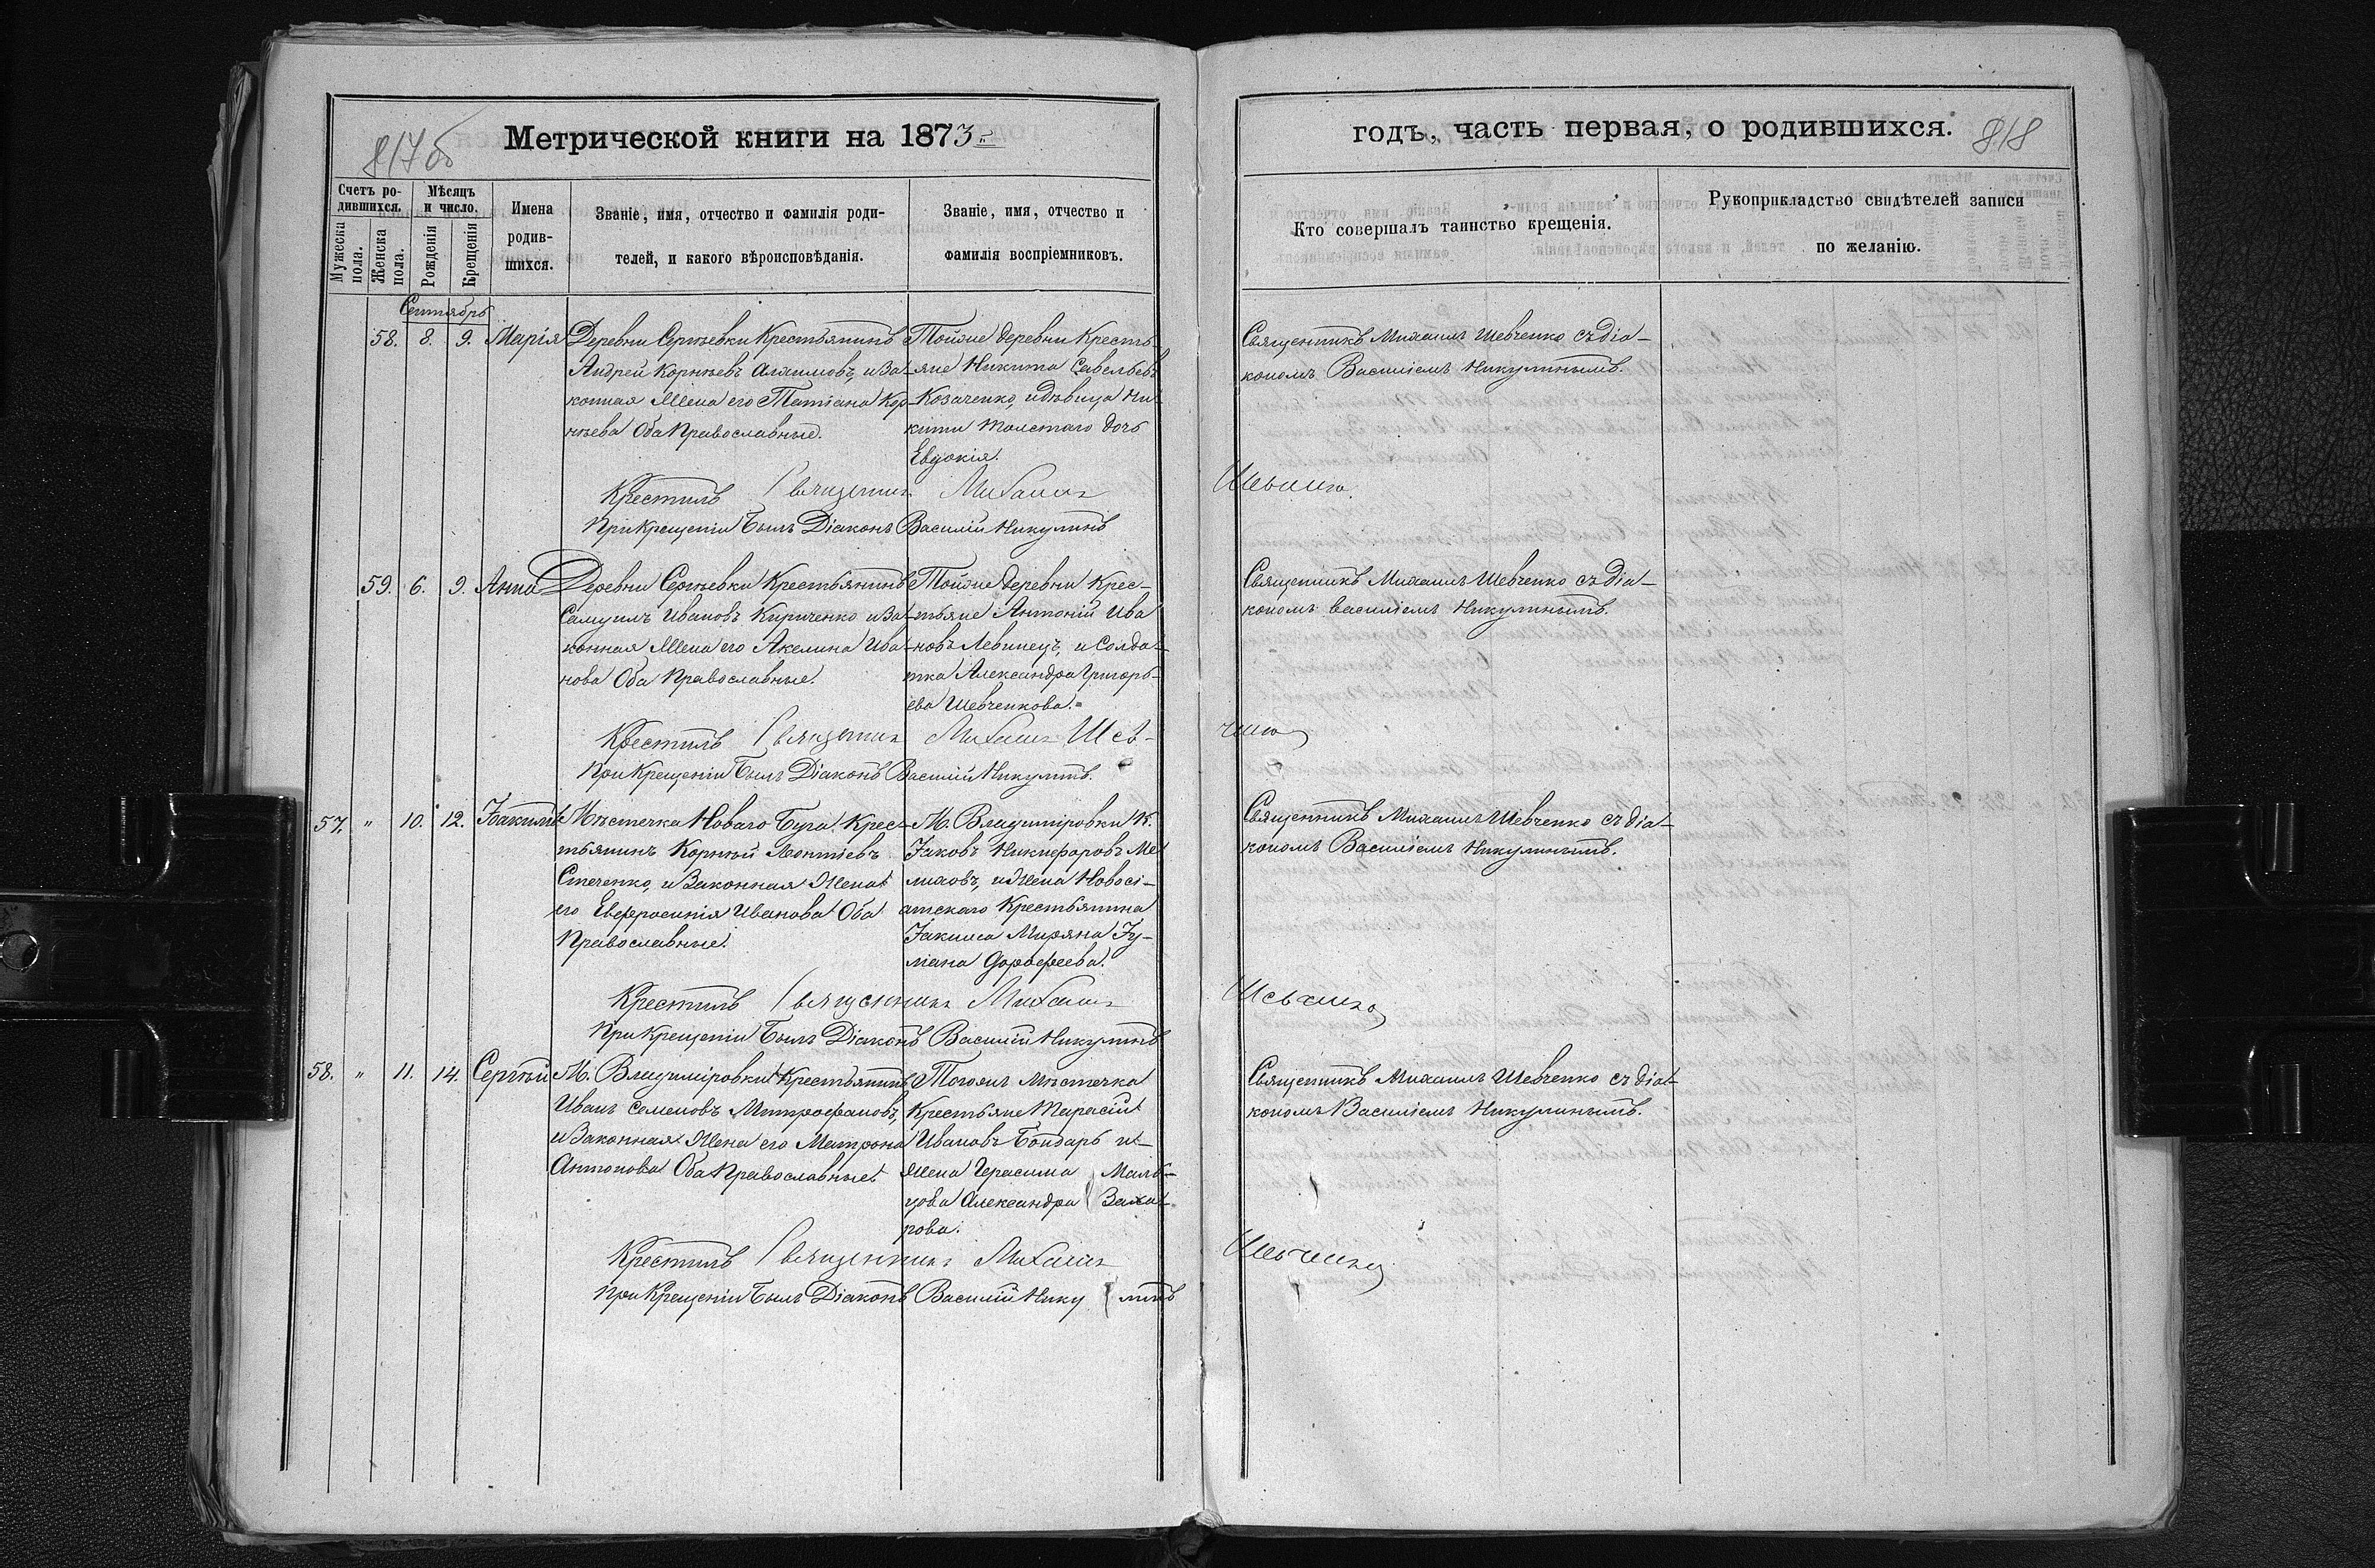 817 об
Метрической книги на 1873
Счетъ ро-
дившихся.
Мужеска пола.
Женска пола.
Мѣсяцъ
и число.
Рожденія
Крещенія
Имена
родив-
шихся.
Званіе, имя, отчество и фамилія роди-
телей, и какого вѣроисповѣданія.
Званіе, имя, отчество и
фамилія воспріемниковъ.
Сентябрь
58. 8. 9. Марія
Деревни Сергѣевки Крестьянинъ
Андрей Корнѣевъ и За-
конная Жена его Татіана Кор-
нѣева Оба Православные.
Тойже деревни Кресть
яне Никита Савельевъ
Козаченко, и дѣвица Ни
киты Толстаго дочь
Евдокія.
Крестилъ Священник Михаил
При Крещеніи Былъ Діаконъ Василій Никулинъ
59. 6. 9. Анна
Деревни Сергѣевки Крестьянинъ
Самуилъ Ивановъ Кириченко и За-
конная Жена его Акелина Ива-
нова Оба Православные.
Тойже деревни Крес-
тьяне Антоній Ива
новъ Левинецъ, и Солда-
тка Александра Григорь-
ева Шевченкова.
Крестилъ Священник Михаил Шев-
При Крещеніи Былъ Діаконъ Василій Никулинъ.
57. " 10. 12. Іоакимъ
Мѣстечка Новаго Буга Крес-
тьянинъ Корнѣй Леонтіевъ
Стеченко, и Законная Жена
его Евфросинія Иванова Оба
Православные.
М. Владиміровки К.
Іаковъ Никифоровъ Ме
лиховъ, и Жена Новосі-
атскаго Крестьянина
Іакима Миряна Іу-
ліана Дорофеева.
Крестилъ Священник Михаил
При Крещеніи Былъ Діаконъ Василій Никулинъ
58. " 11. 14. Сергѣй
М. Владиміровки Крестьянинъ
Иванъ Семеновъ Митрофановъ,
и Законная Жена его Матрона
Антонова Оба Православные
Тогоже мѣстечка
Крестьяне Тарасій
Ивановъ Бондарь и
Жена Герасима Маль-
цова Александра Заха-
рова.
Крестилъ Священник Михаил
При Крещеніи Былъ Діаконъ Василій Никулинъ
годъ, часть первая, о родившихся.
818
Кто совершалъ таинство крещенія.
Рукоприкладство свидѣтелей записи
по желанію.
Священникъ Михаилъ Шевченко съ діа-
кономъ Василіемъ Никулинымъ.
Священникъ Михаилъ Шевченко съ діа-
кономъ Василіемъ Никулинымъ.
Священникъ Михаилъ Шевченко съ діа-
кономъ Василіемъ Никулинымъ.
Священникъ Михаилъ Шевченко съ діа-
кономъ Василіемъ Никулинымъ.